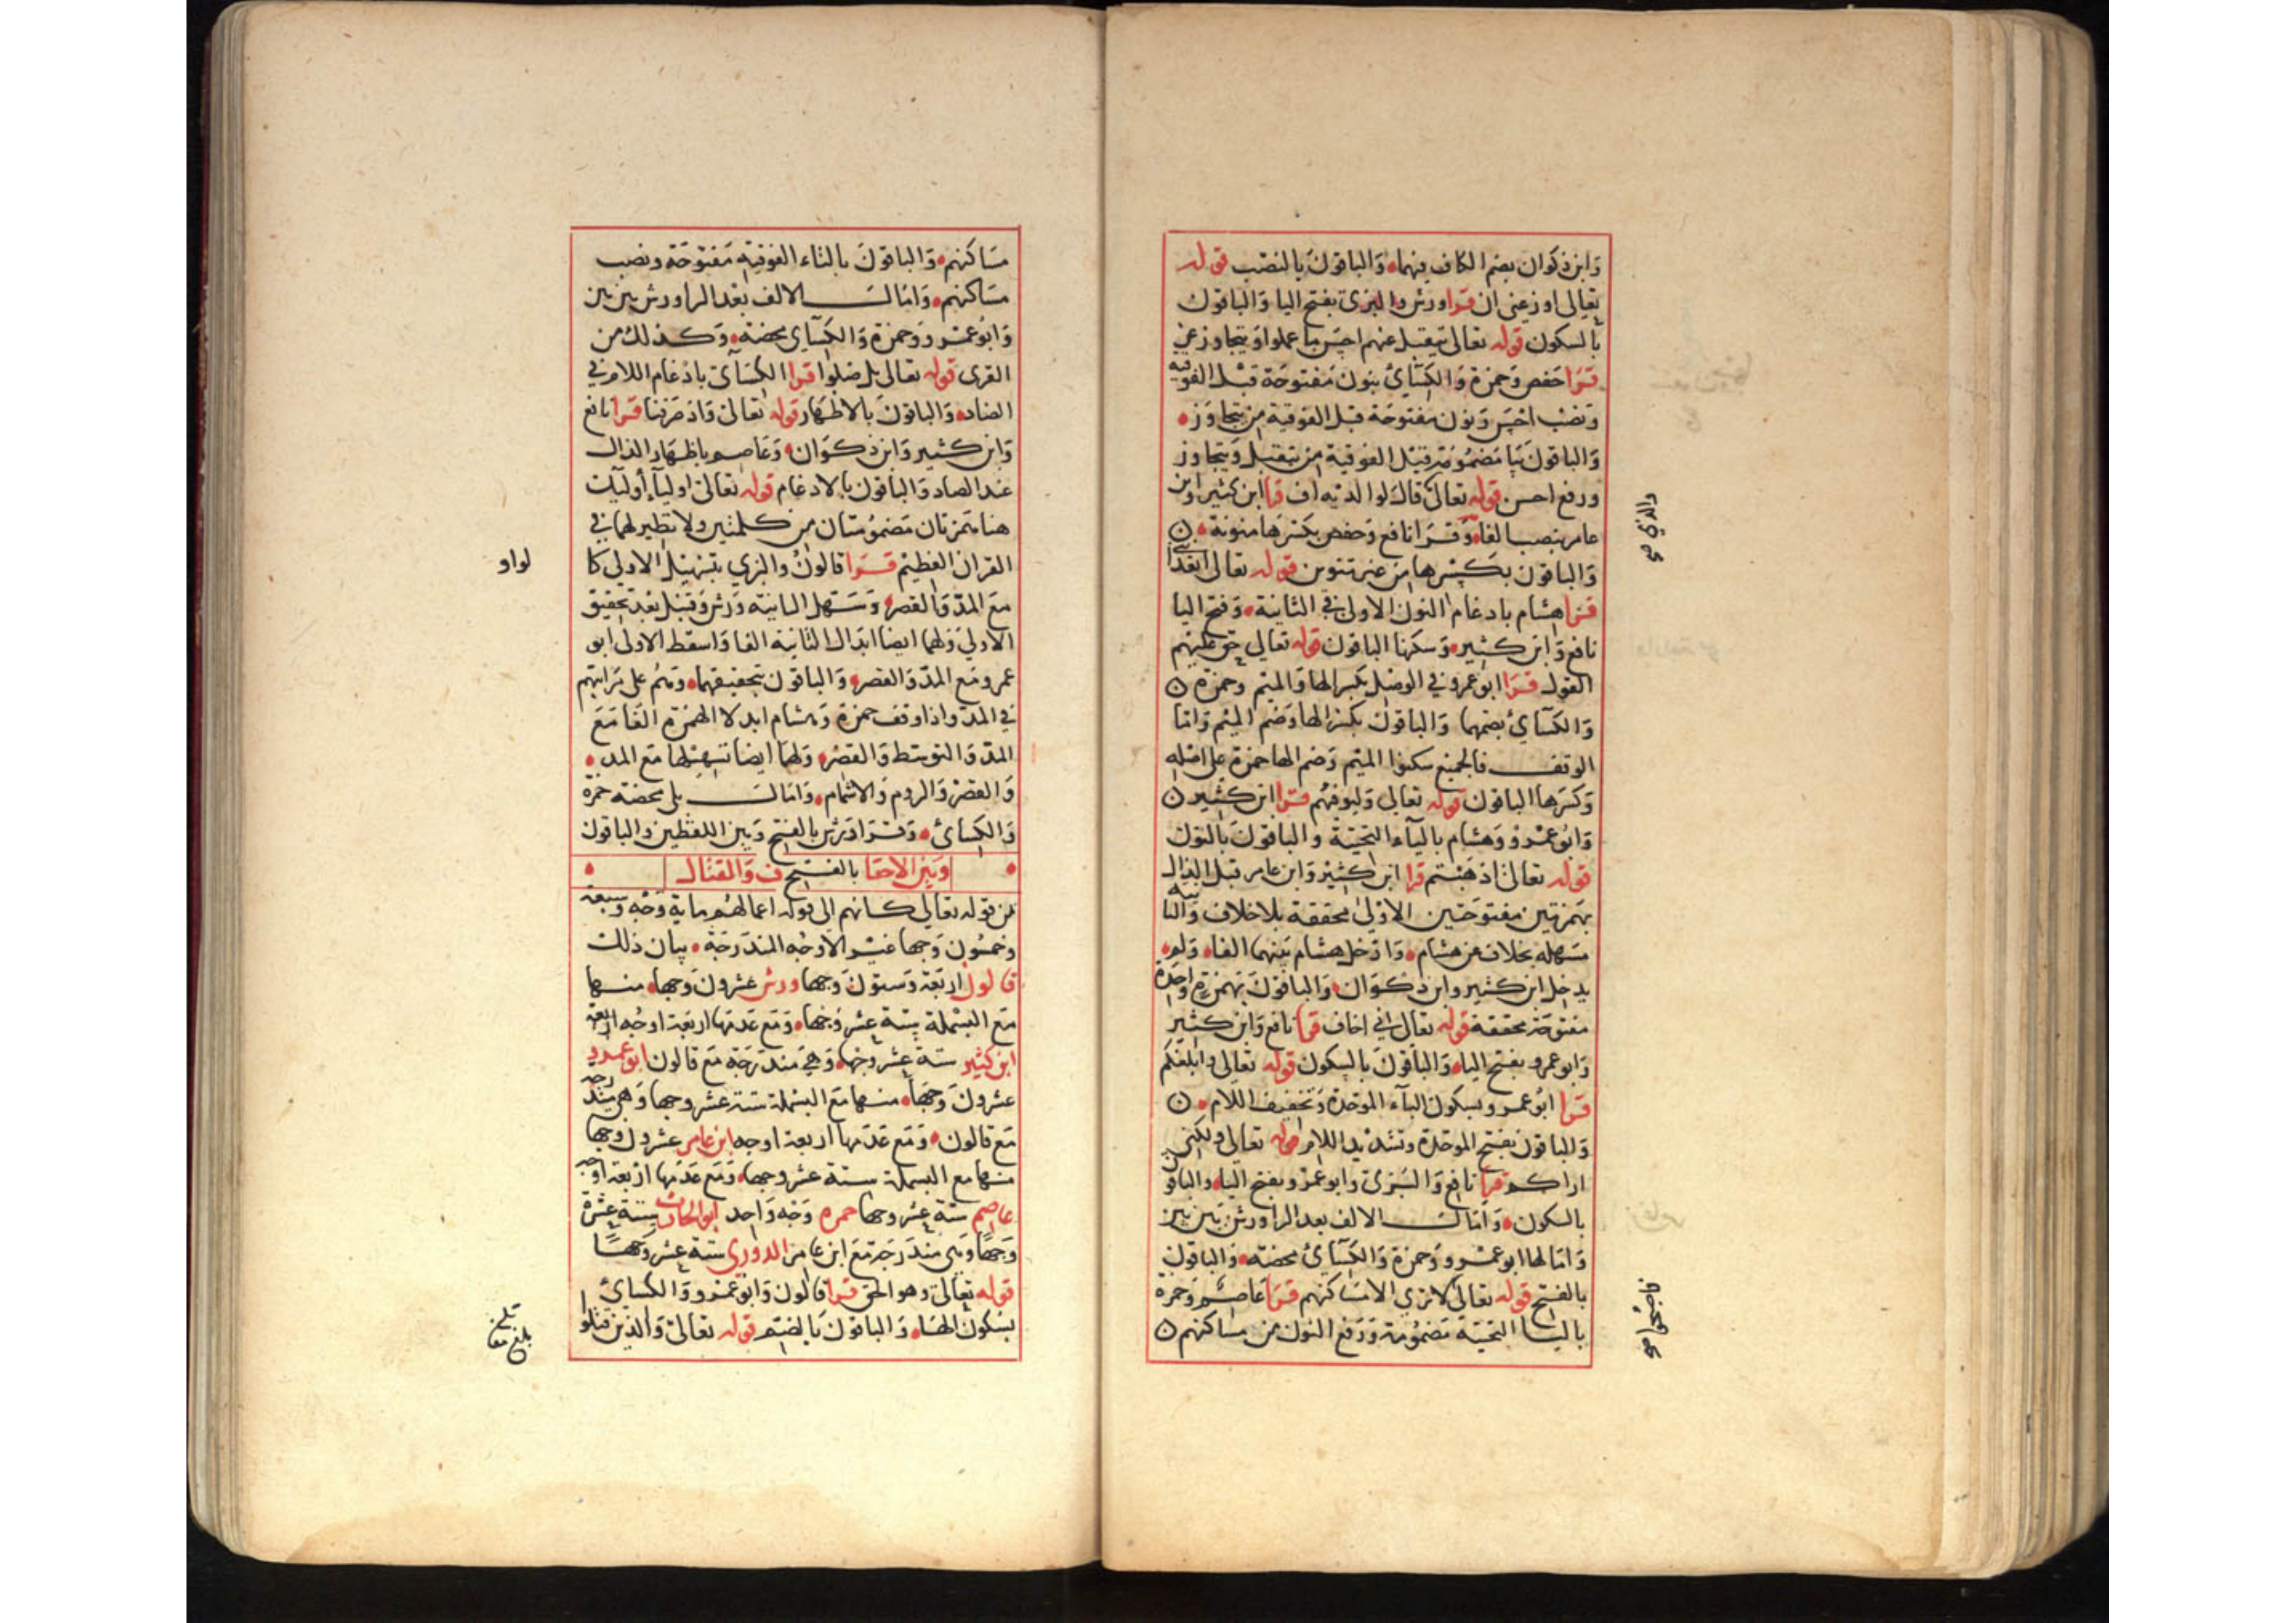 وابن ذكوان بضم الكاف فيهما والباقون بالنصب قوله
تعالى اوزعني ان قرا ورش والبزى بفتح اليا والباقون
بالسكون قوله تعالى يتقبل عنهم احسن ما عملوا ويتجاوز عن
قرا حفص وحمزة والكسآئ بنون مفتوحة قبل الفوقية
ونصب احسن ونون مفتوحة قبل الفوقية من يتجاوز
والباقون بيا مضمومة قبل الفوقية من يتقبل ويتجاوز
ورفع احسن قوله تعالى قال لوالديه اف قرا ابن كثير وابن
عامر بنصب الفا وقرا نافع وحفص بكسرها منونة
والباقون بكسرها من غير تنوين قوله تعالى اتعدا نني
قرا هشام بادغام النون الاولى في الثانية وفتح اليا
نافع وابن كثير وسكنها الباقون قوله تعالى حق عليهم
القول قرا ابو عمرو في الوصل بكسر الها والميم وحمزة
والكسآئ بضمهما والباقون بكسر الها وضم الميم واما
الوقف فالجميع سكنوا الميم وضم الها حمزة على اصله
وكسرها الباقون قوله تعالى وليوفيهم قرا ابن كثير
وابو عمرو وهشام باليآء التحتية والباقون بالنون
قوله تعالى اذهبتم قرا ابن كثير وابن عامر قبل الذال
بهمزتين مفتوحتين الاولى محققة بلا خلاف والثانية
مسهلة بخلاف عن هشام وادخل هشام بينهما الفا ولم
يدخل ابن كثير وابن ذكوان والباقون بهمزة واحدة
مفتوحة محققة قوله تعالى اني اخاف قرا نافع وابن كثير
وابو عمرو بفتح اليا والباقون بالسكون قوله تعالى وابلغكم
قرا ابو عمرو بسكون البآء الموحدة وتخفيف اللام
والباقون بفتح الموحدة وتشديد اللام قوله تعالى ولكني
اراكم قرا نافع والبزى وابو عمرو بفتح اليا والباقون
بالسكون وامال الالف بعد الرا ورش بين بين
وامالها ابو عمرو وحمزة والكسآئ محضة والباقون
بالفتح قوله تعالى لا ترى الا مساكنهم قرا عاصم وحمزة
باليا التحتية مضمومة ورفع النون من مساكنهم
مساكنهم والباقون بالتاء الفوقية مفتوحة ونصب
مساكنهم وامال الالف بعد الرا ورش بين بين
وابو عمرو وحمزة والكسآى محضة وكذلك من
القرى قوله تعالى بل ضلوا قرا الكسآئ بادغام اللام في
الضاد والباقون بالاظهار قوله تعالى واذ صرفنا قرا نافع
وابن كثير وابن ذكوان وعاصم باظهار الذال
عند الصاد والباقون بالادغام قوله تعالى اوليآء أوليك
هنا همزتان مضمومتان من كلمتين ولا نظير لهما في
القران العظيم قرا قالون والبزي بتسهيل الاولى كا
لواو
مع المد والقصر وتسهل الثانية ورش وقنبل بعد تحقيق
الاولي ولهما ايضا ابدال الثانية الفا واسقط الاولى ابو
عمرو مع المد والقصر والباقون بتحقيقهما وهم على مراتبهم
في المد واذا وقف حمزة وهشام ابدلا الهمزة الفا مع
المد والتوسط والقصر ولهما ايضا تسهيلها مع المد
والقصر والروم والاشمام وامال بلى محضة حمزة
والكسائ وقرا ورش بالفتح وبين اللفظين والباقون
وبين الاحقا بالفتح ف والقتال
من قوله تعالي كانهم الى قوله اعمالهم ماية وجه وسبعة
وخمسون وجها غير الاوجه المندرجة بيان ذلك
قالون اربعة وستون وجها ورش عشرون وجها منها
مع البسملة ستة عشر وجها ومع عدمها اربعة اوجه
ابن كثير ستة عشر وجها وهي مندرجة مع قالون ابو عمرو
عشرون وجها منها مع البسملة ستة عشر وجها وهي مندرجة
مع قالون ومع عدمها اربعة اوجه ابن عامر عشرون وجها
منها مع البسملة ستة عشر وجها ومع عدمها اربعة اوجه
عاصم ستة عشر وجها حمزه وجه واحد ابو الحارث ستة عشرة
وجها وهي مندرجة مع ابن عامر الدوري ستة عشر وجها
قوله تعالى وهو الحق قرا قالون وابو عمرو والكسائ
بسكون الها والباقون بالضم قوله تعالى والذين قتلوا
بلغ مقا